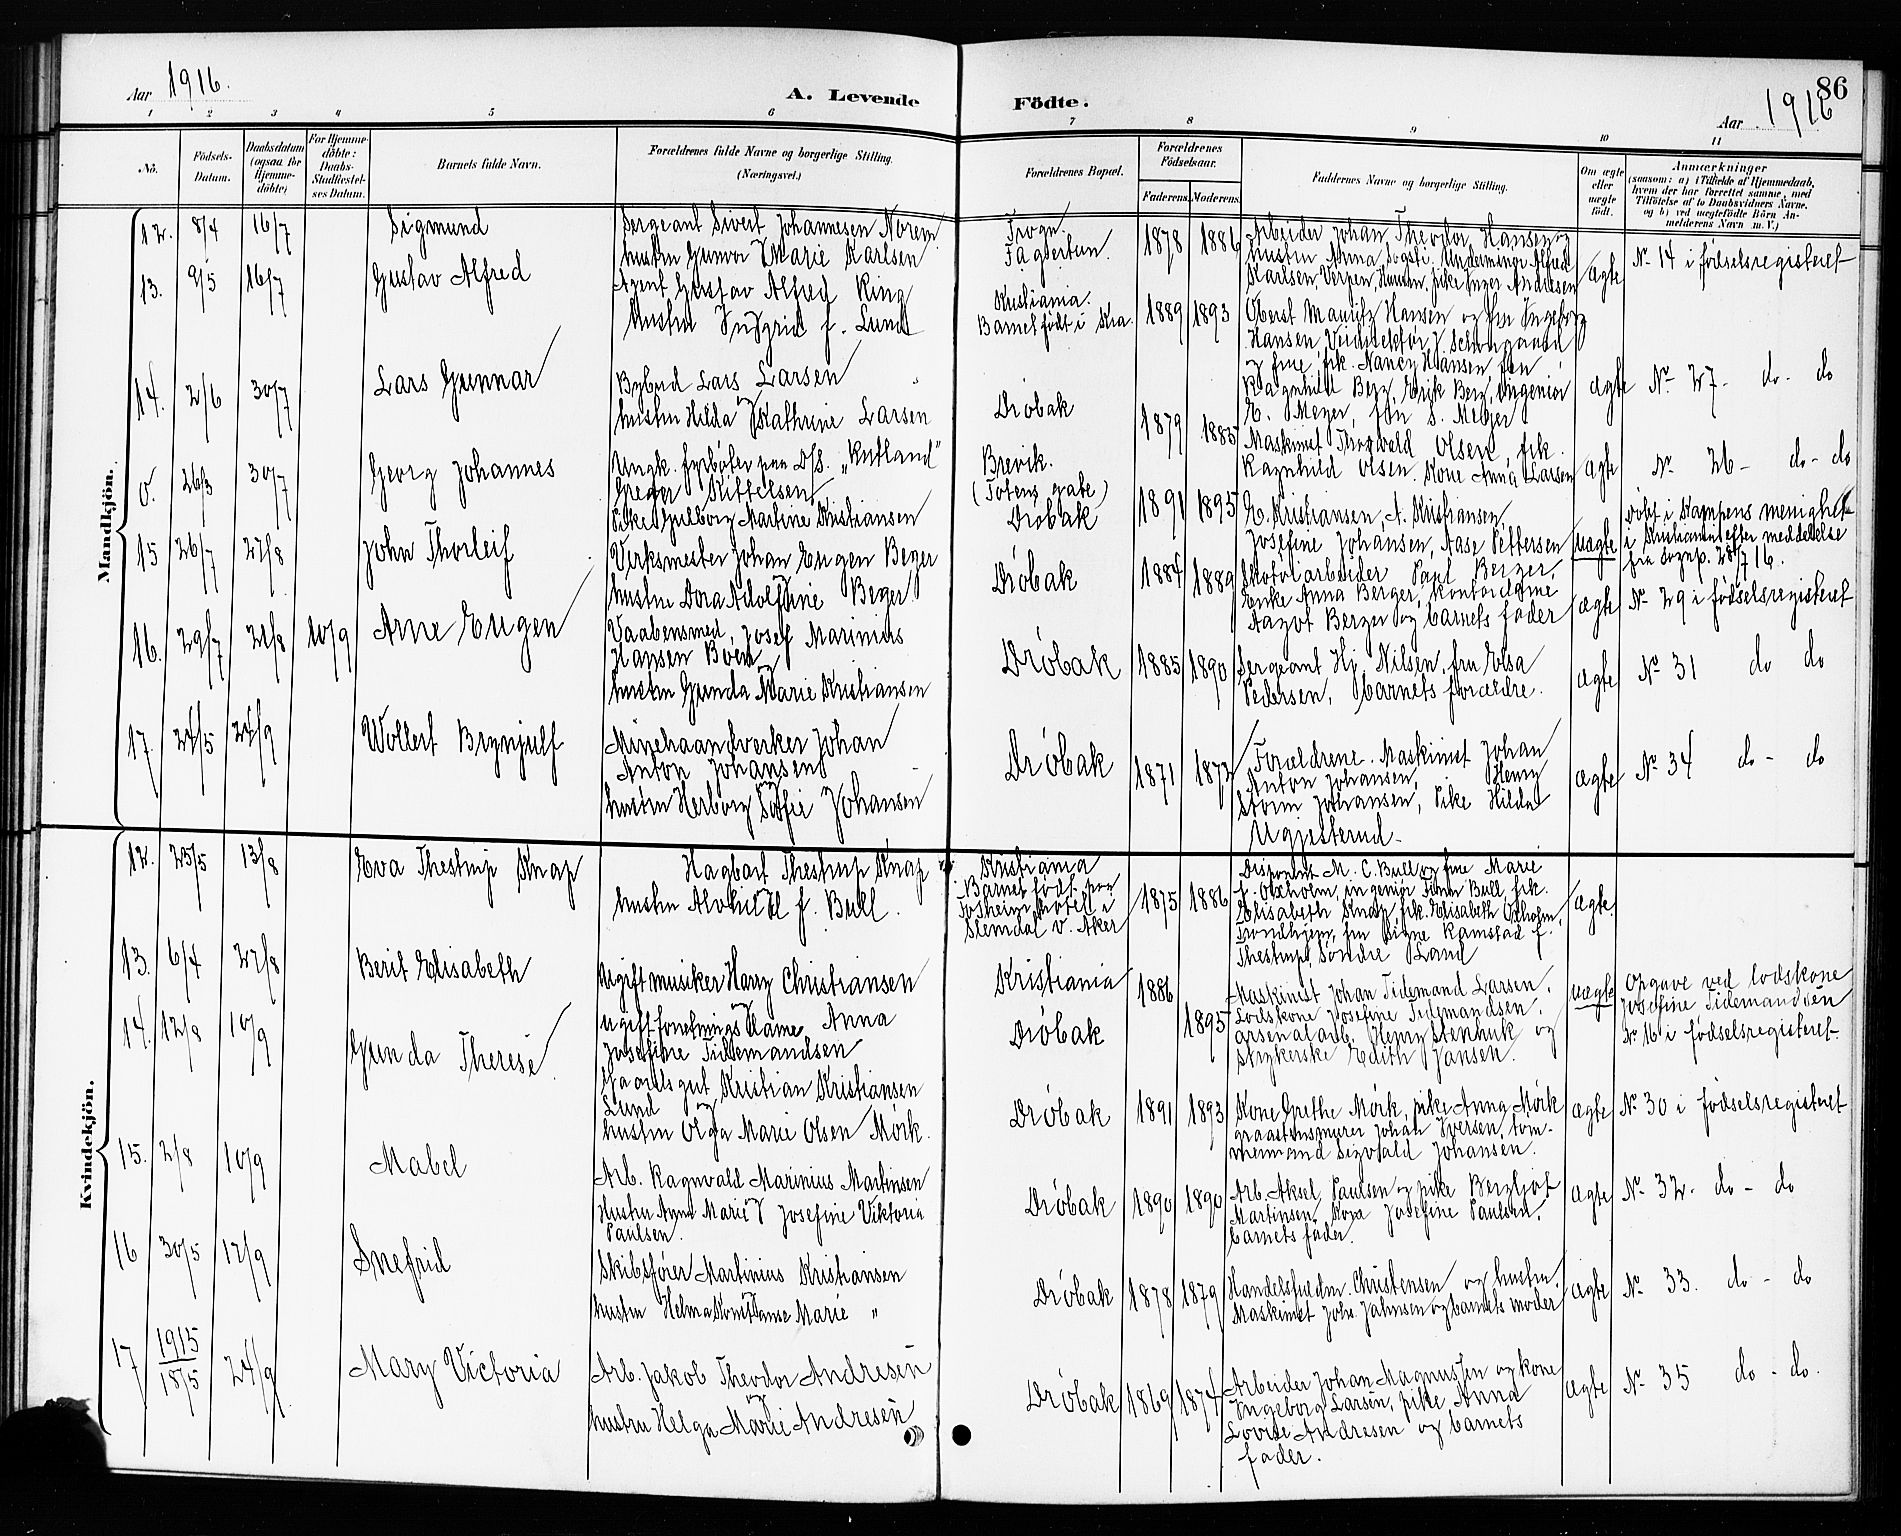 86
Aar 1916.
A. Levende Födte.
Aar 1916
1 2 3 4 5 6 7 8 9 10 11
No.
Födsels-Datum.
Daabsdatum (ogsaa for Hjemme-döbte)
For Hjemme-döbte: Daabs-Stadfæstel-ses Datum.
Barnets fulde Navn.
Forældrenes fulde Navne og borgerlige Stilling.
(Næringsvei.)
Forældrenes Bopæl.
Forældrenes Födselsaar.
Faderens. Moderens.
Faddernes Navne og borgerlige Stilling.
Om ægte eller uægte födt.
Anmærkninger
(saasom: a) i Tilfælde af Hjemmedaab, hvem der har forrettet samme, med Tilföielse af to Daabsvidners Navne, og b) ved uægtefödte Börn An-melderens Navn m. V.)
Mandkjön.
12. 8/4 16/7 Sigmund
Sergeant Sivert Johannesen Norem
hustru Gunvor Marie Karlsen
Frogn.
1878 1886
Arbeider Johan Theodor Hansen og
hustru Anna, Sogsti. Undermingr Alfred
Karlsen Verpen, Hurum, pike Inger Andresen
ægte
No 14 i fødselsregisteret
13. 9/5 16/7 Gustav Alfred
Agent Gustav Alfred Ring
hustru Ingrid f. Lund
Kristiania.
Barnet født i Kra.
1889 1893
Oberst Mauritz Hansen og fru Ingeborg
Hansen,
og frue, frk. Nancy Hansen, fru
Ragnhild Berg, Erik Berg, Ingeniør
E. Meyer, fru S. Meyer
ægte
No 27 - do - do
14. 2/6 30/7 Lars Gunnar
Bybud Lars Larsen
hustru Hilda Kathrine Larsen
Drøbak
1879 1885
Maskinist Thorvald Olsen, frk.
Ragnhild Olsen. Kone Anna Larsen
ægte
No 26 - do - do
0. 26/3 30/7 Georg Johannes
Ungk. fyrbøter paa D/S. "Rutland"
Greger Kittelsen
Pike Gulborg Martine Kristiansen
Brevik.
(Totens gate)
Drøbak
1891 1895
E. Kristiansen, A. Kristiansen,
Josefine Johansen, Aase Pettersen
uægte
Døbt i Kampens menighet
i Kristiania efter meddelelse
fra sognp. 28/7 16.
15 26/7 27/8 John Thorleif
Verksmester Johan Eugen Berger
hustru Dora Adolfine Berger
Drøbak
1884 1889
Skotøiarbeider Paul Berger,
Enke Anna Berger, kontordame
Aagot Berger og barnets fader
ægte
No 29 i fødselsregisteret
16. 29/7 21/8 10/9 Arne Eugen
Vaabensmed, Josef Marinius
Hansen Boem
hustru Gunda Marie Kristiansen
Drøbak
1885 1890
Sergeant Hj. Nilsen, fru Elsa
Pedersen, barnets forældre.
ægte
No 31 do do
17. 24/5 24/9 Wollert Brynjulf
Minehaandverker Johan
Anton Johansen
hustru Herborg Sofie Johansen
Drøbak
1871 1872
Forældrene. Maskinist Johan
Anton Johansen, Henry
Storm Johansen, Pike Hilda
Ugjesterud.
ægte
No 34 do - do
Kvindekjön.
12. 25/5 13/8 Eva Thestrup Knap
Hagbart Thestrup Knap
hustru Alvhild f. Bull.
Kristiania
Barnet født paa
hotell i
Slemdal V. Aker
1875 1886
Disponent M. C. Bull og frue Marie
f. Oxholm, ingeniør Bull, frk.
Elisabeth Knap, frk. Elisabeth Oxholm,
Trondhjem, fru Signe Ramstad f.
Thestrup, Søndre Land
ægte
13. 6/4 27/8 Berit Elisabeth
Ugift musiker Harry Christiansen
ugift forretningsdame Anna
Josefine Tidemandsen
Kristiania
Drøbak
1886
1895
Maskinist Johan Tidemand Larsen,
Lodskone Josefine Tidemandsen,
arsenalarb. Henry Stenhuk og
strykerske Edith Jansen.
uægte
Opgave ved lodskone
Josefine Tidemandsen
No 16 i fødselsregisteret
14. 12/8 10/9 Gunda Therese
Gaardsgut Kristian Kristiansen
Lund
hustru Olga Marie Olsen Mørk.
Drøbak
1891 1893
Kone Grethe Mørk, pike Anna Mørk
graastensmurer Johan Iversen, tøm-
mermand Sigvald Johansen.
ægte
No 30 i fødselsregisteret
15. 2/8 10/9 Mabel
Arb. Ragnvald Marinius Martinsen
Hustru Anna Marie Josefine Viktoria
Paulsen.
Drøbak
1890 1890
Arb. Aksel Paulsen og pike Bergljot
Martinsen, Kona Josefine Paulsen,
barnets fader.
ægte
No 32. do - do
16 30/5 17/9 Snefrid
Skibsfører Martinius Kristiansen
hustru Helma Konstanse Marie "
Drøbak
1878 1879
Handelsfuldm. Christensen og hustru.
Maskinist Johs. Jahnsen og barnets moder
ægte
No 33. do - do
17 1915 18/5 24/9 Mary Victoria
Arb. Jakob Theodor Andresen
hustru Helga Marie Andresen
Drøbak
1869 1874
Arbeider Johan Magnussen og kone
Ingeborg Larsen, pike Anna
Lovise Andresen og barnets
fader.
ægte
No 35 do - do.